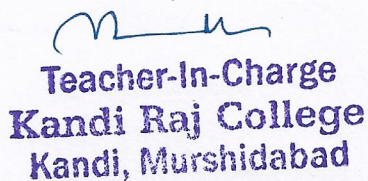 Teacher-In-Charge
Kandi Raj College
Kandi, Murshidabad